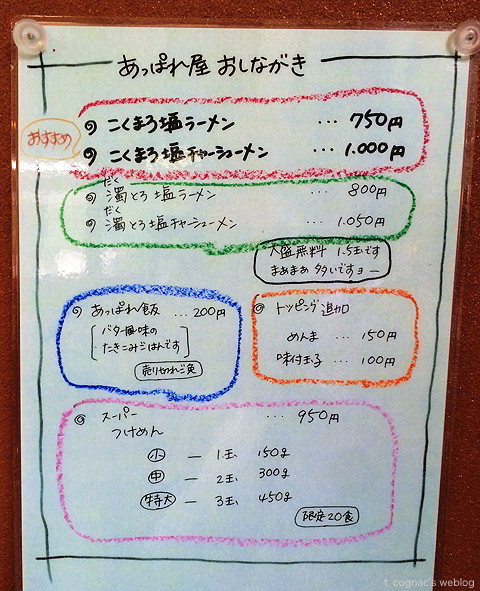 あっぱれ屋 おしながき
おすすめ
◎ こくまろ塩ラーメン ... 750円
◎ こくまろ塩チャーシューメン ... 1.000円
だく
◎ 濁とろ塩ラーメン ... 800円
だく
◎ 濁とろ塩チャーシューメン ... 1.050円
大盛無料 1.5玉です
まあまあ多いですョー
◎ あっぱれ飯 ... 200円
バター風味の
たきこみごはんです
売り切れご免
◎ トッピング追加
めんま ... 150円
味付玉子 ... 100円
◎ スーパー ... 950円
つけめん
小 — 1玉 150g
中 — 2玉 300g
特大 — 3玉 450g
限定20食
t cognac's weblog